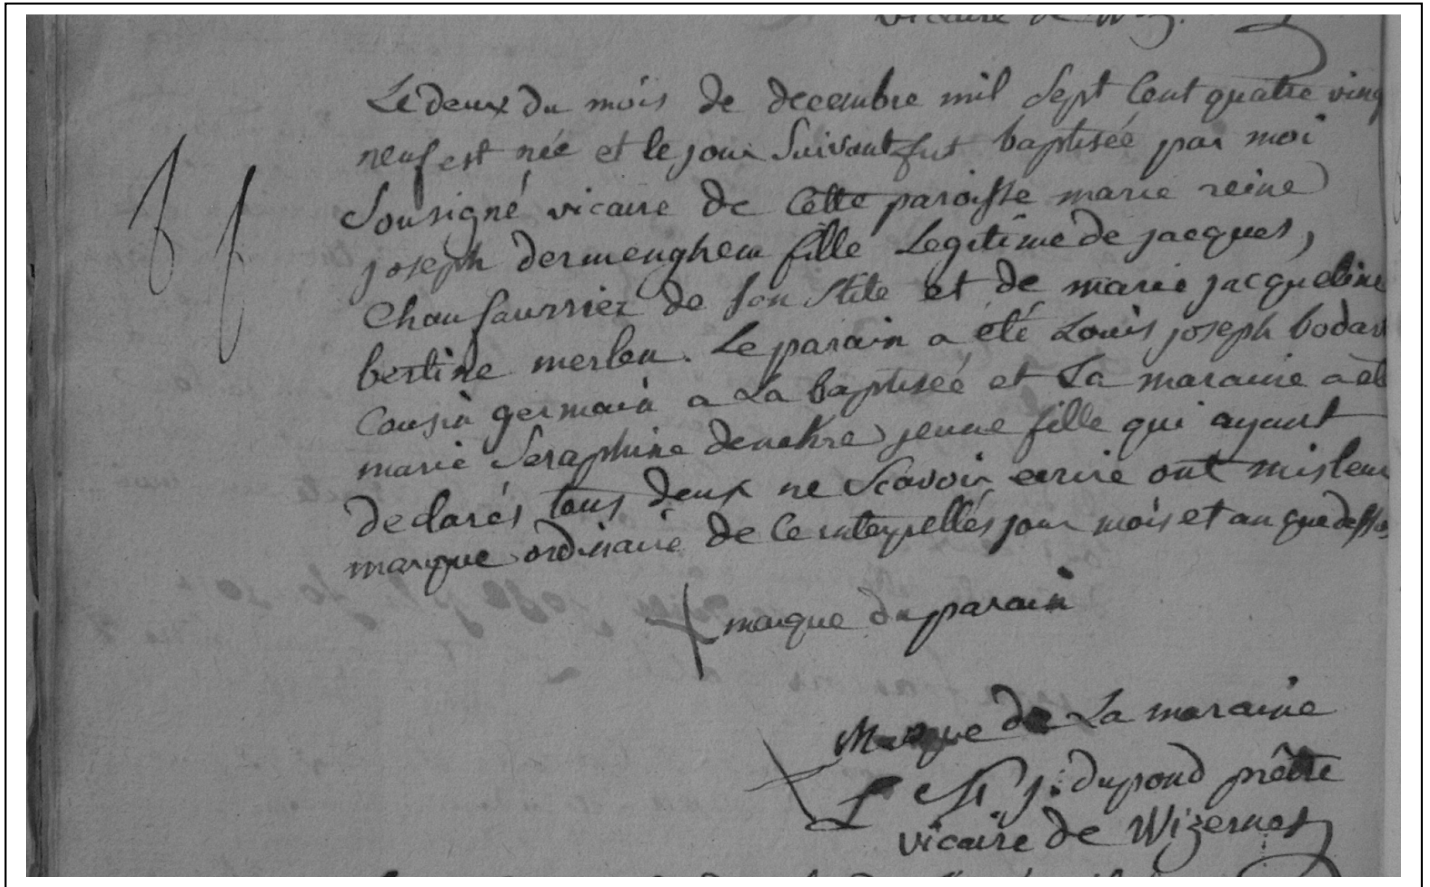 vicaire de Wiz.
Le deux du mois de decembre mil Sept Cent quatre ving
neuf est née et le jour Suivant fut baptisée par moi
Sousigné vicaire de Cette paroisse marie reine
joseph dermenghem fille Legitime de jacques,
Chaufaurrier de son Stile et de marie jacqueline
bertine merlen. Le parain a été Louis joseph bodar
Cousin germain a La baptisée et La maraine a eté
marie Seraphine jeune fille qui ayant
declarés tous deux ne Scavoir ecrire ont mis leur
marque ordinaire de Ce interpellés jour mois et an que dessus
marque du parain
Marque de La maraine
j. dupond prêtre
vicaire de Wizernes